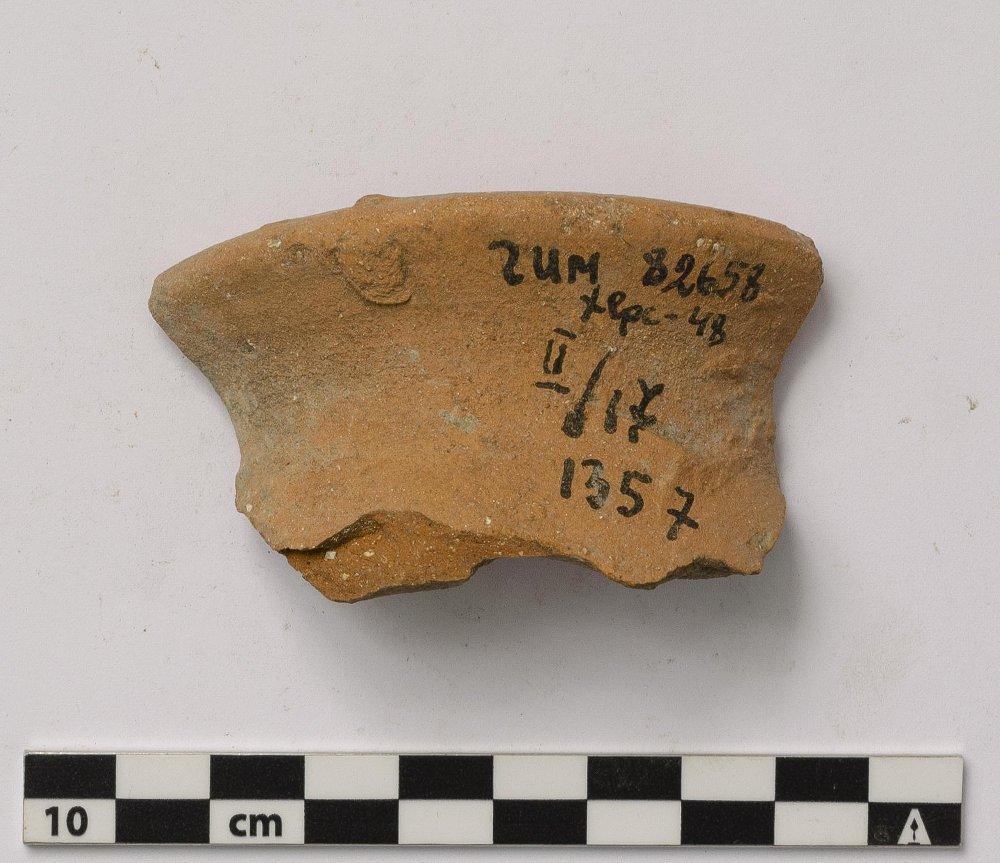 ГИМ 82658
Херс-48
II/17
1357
10 cm